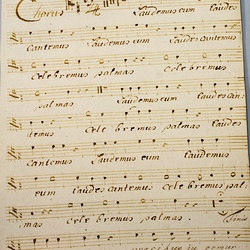 Chorus Laudemus eum laudes
cantemus Laudemus eum Laudes cantemus
Celebremus palmas Celebremus
palmas Laudemus eum laudes can-
temus Celebremus palmas laudes
cantemus Laudemus eum laudes cantemus
eum laudes cantemus Celebremus pal-
mas Celebremus palmas.